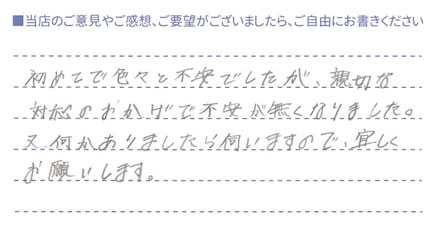 ■当店のご意見やご感想、ご要望がございましたら、ご自由にお書きください
初めてで色々と不安でしたが、親切な
対応のおかげで不安が無くなりました。
又何かありましたら伺いますので、宜しく
お願いします。